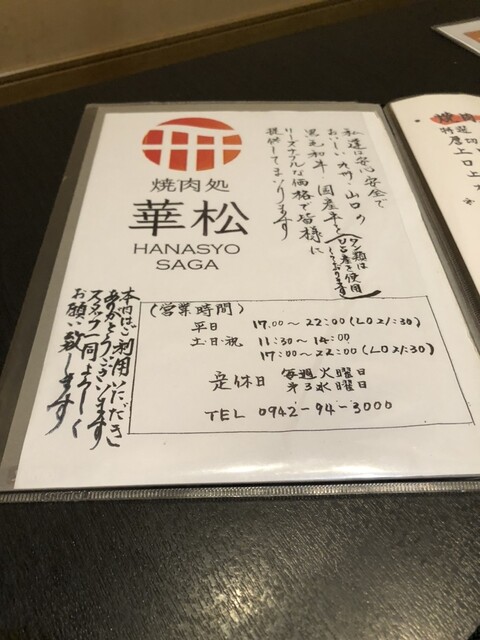 焼肉処
華松
HANASYO
SAGA
私達は安心安全で
おいしい九州・山口の
黒毛和牛・国産牛を
リーズナブルな価格で皆様に
提供してまいります
(タン類は
US産を使用
しております)
本日はご利用いただき
ありがとうございます
スタッフ一同よろしく
お願い致します
(営業時間)
平日 17:00〜22:00(LO21:30)
土・日・祝 11:30〜14:00
17:00〜22:00(LO21:30)
定休日 毎週火曜日
第3水曜日
TEL 0942-94-3000
焼肉
特選
唐
上ロ
上
※